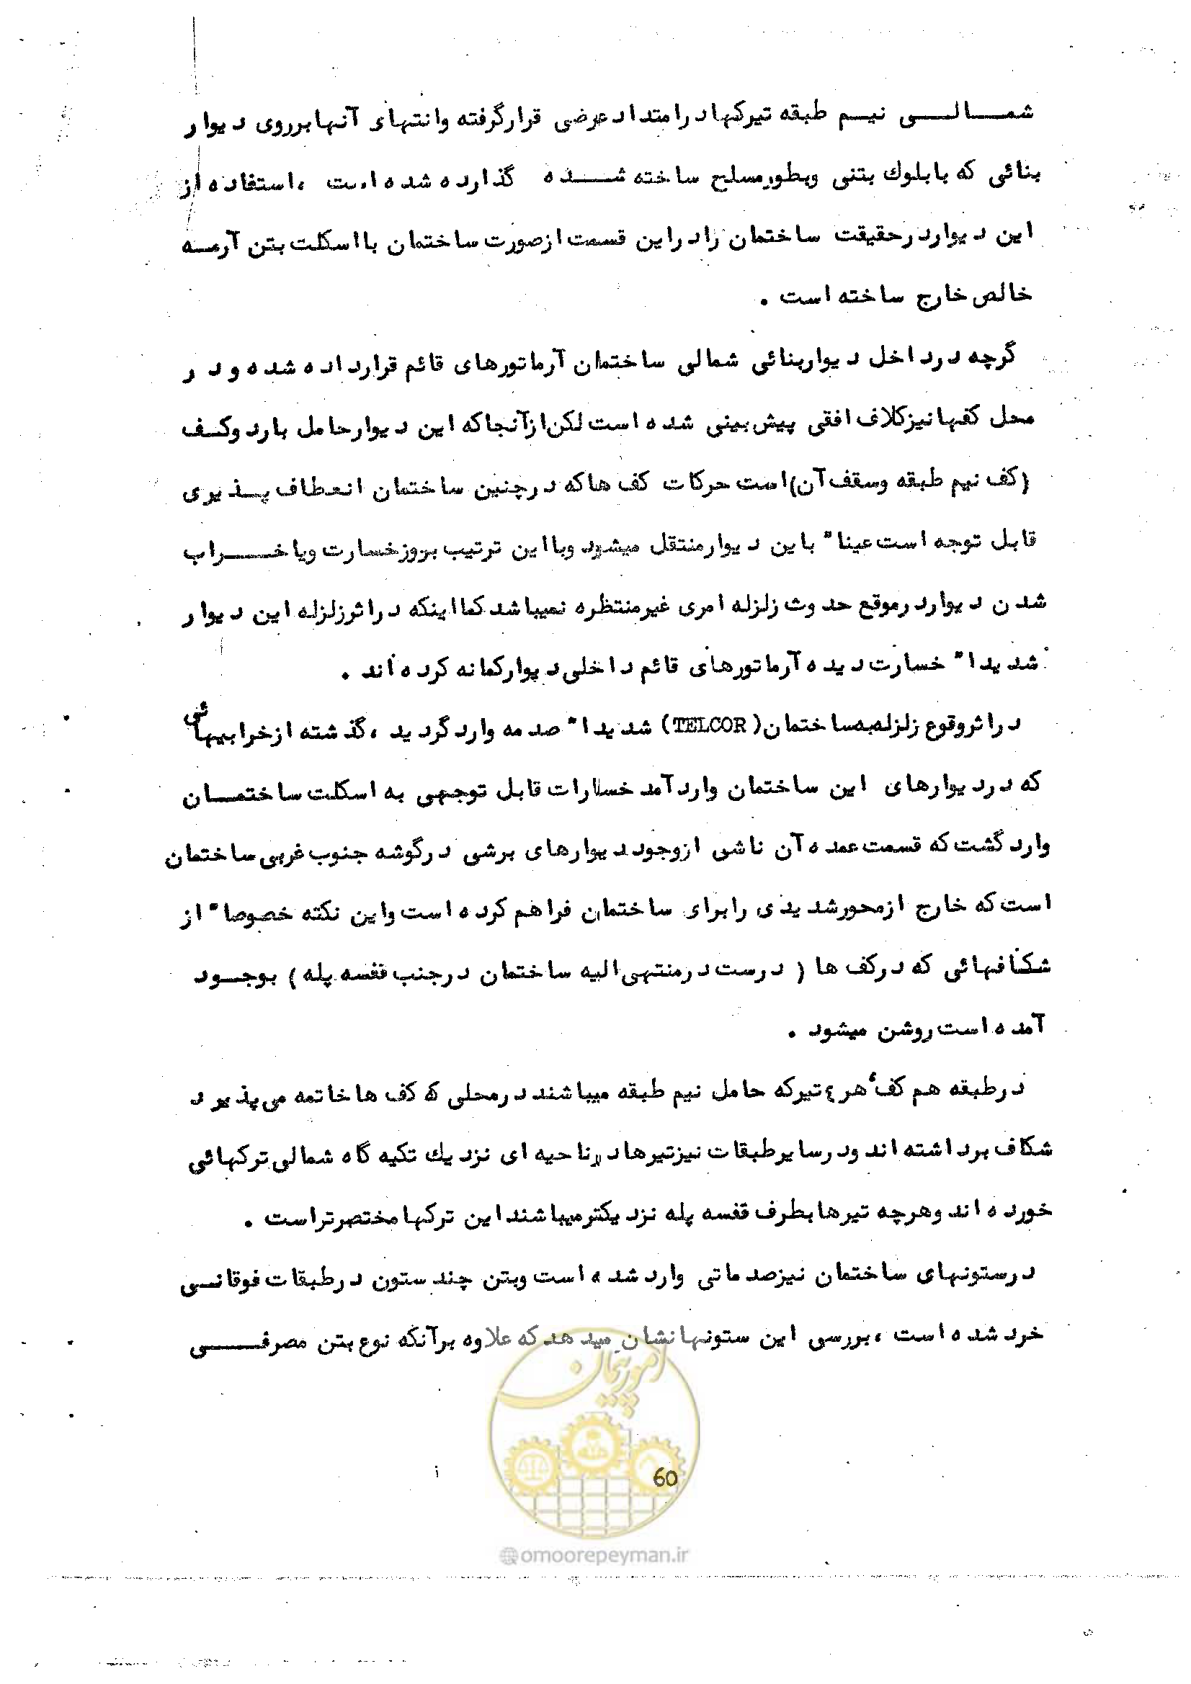 شمالی نیم طبقه تیرکها درامتداد عرضی قرارگرفته وانتهای آنها برروی دیوار
بنائی که بابلوك بتنی وبطورمسلح ساخته شده گذارده شده است ،استفاده از
این دیوار درحقیقت ساختمان را دراین قسمت ازصورت ساختمان بااسکلت بتن آرمه
خالص خارج ساخته است .
گرچه در داخل دیواربنائی شمالی ساختمان آرماتورهای قائم قرار داده شده و در
محل کفها نیزکلاف افقی پیش بینی شده است لکن ازآنجاکه این دیوار حامل بار دوکف
(کف نیم طبقه وسقف آن) است حرکات کف هاکه درچنین ساختمان انعطاف پذیری
قابل توجه است عینا" باین دیوار منتقل میشود وبااین ترتیب بروزخسارت ویا خراب
شدن دیوار درموقع حدوث زلزله امری غیرمنتظره نمیباشد کمااینکه دراثرزلزله این دیوار
شدیدا" خسارت دیده آرماتورهای قائم داخلی دیوارکمانه کرده اند .
دراثروقوع زلزله به ساختمان (TELCOR) شدیدا" صدمه واردگردید ،گذشته ازخرابیهائی
که دردیوارهای این ساختمان واردآمد خسارات قابل توجهی به اسکلت ساختمان
وارد گشت که قسمت عمده آن ناشی ازوجود دیوارهای برشی درگوشه جنوب غربی ساختمان
است که خارج ازمحورشدیدی را برای ساختمان فراهم کرده است واین نکته خصوصا" از
شکافهائی که درکف ها ( درست درمنتهی الیه ساختمان درجنب قفسه پله ) بوجود
آمده است روشن میشود .
درطبقه هم کف، هر ٤ تیرکه حامل نیم طبقه میباشند درمحلی که کف ها خاتمه می پذیرد
شکاف برداشته اند ودرسایرطبقات نیزتیرها درناحیه ای نزدیك تکیه گاه شمالی ترکهائی
خورده اند وهرچه تیرها بطرف قفسه پله نزدیکترمیباشند این ترکها مختصرتراست .
درستونهای ساختمان نیزصدماتی وارد شده است وبتن چند ستون درطبقات فوقانی
خرد شده است ،بررسی این ستونها نشان میدهد که علاوه برآنکه نوع بتن مصرفی
امور پیمان
60
@omoorepeyman.ir